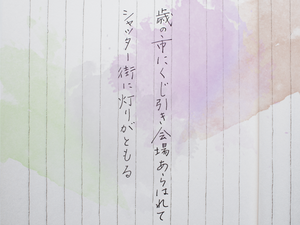 歳の市にくじ引き会場あらはれて
シャッター街に灯りがともる